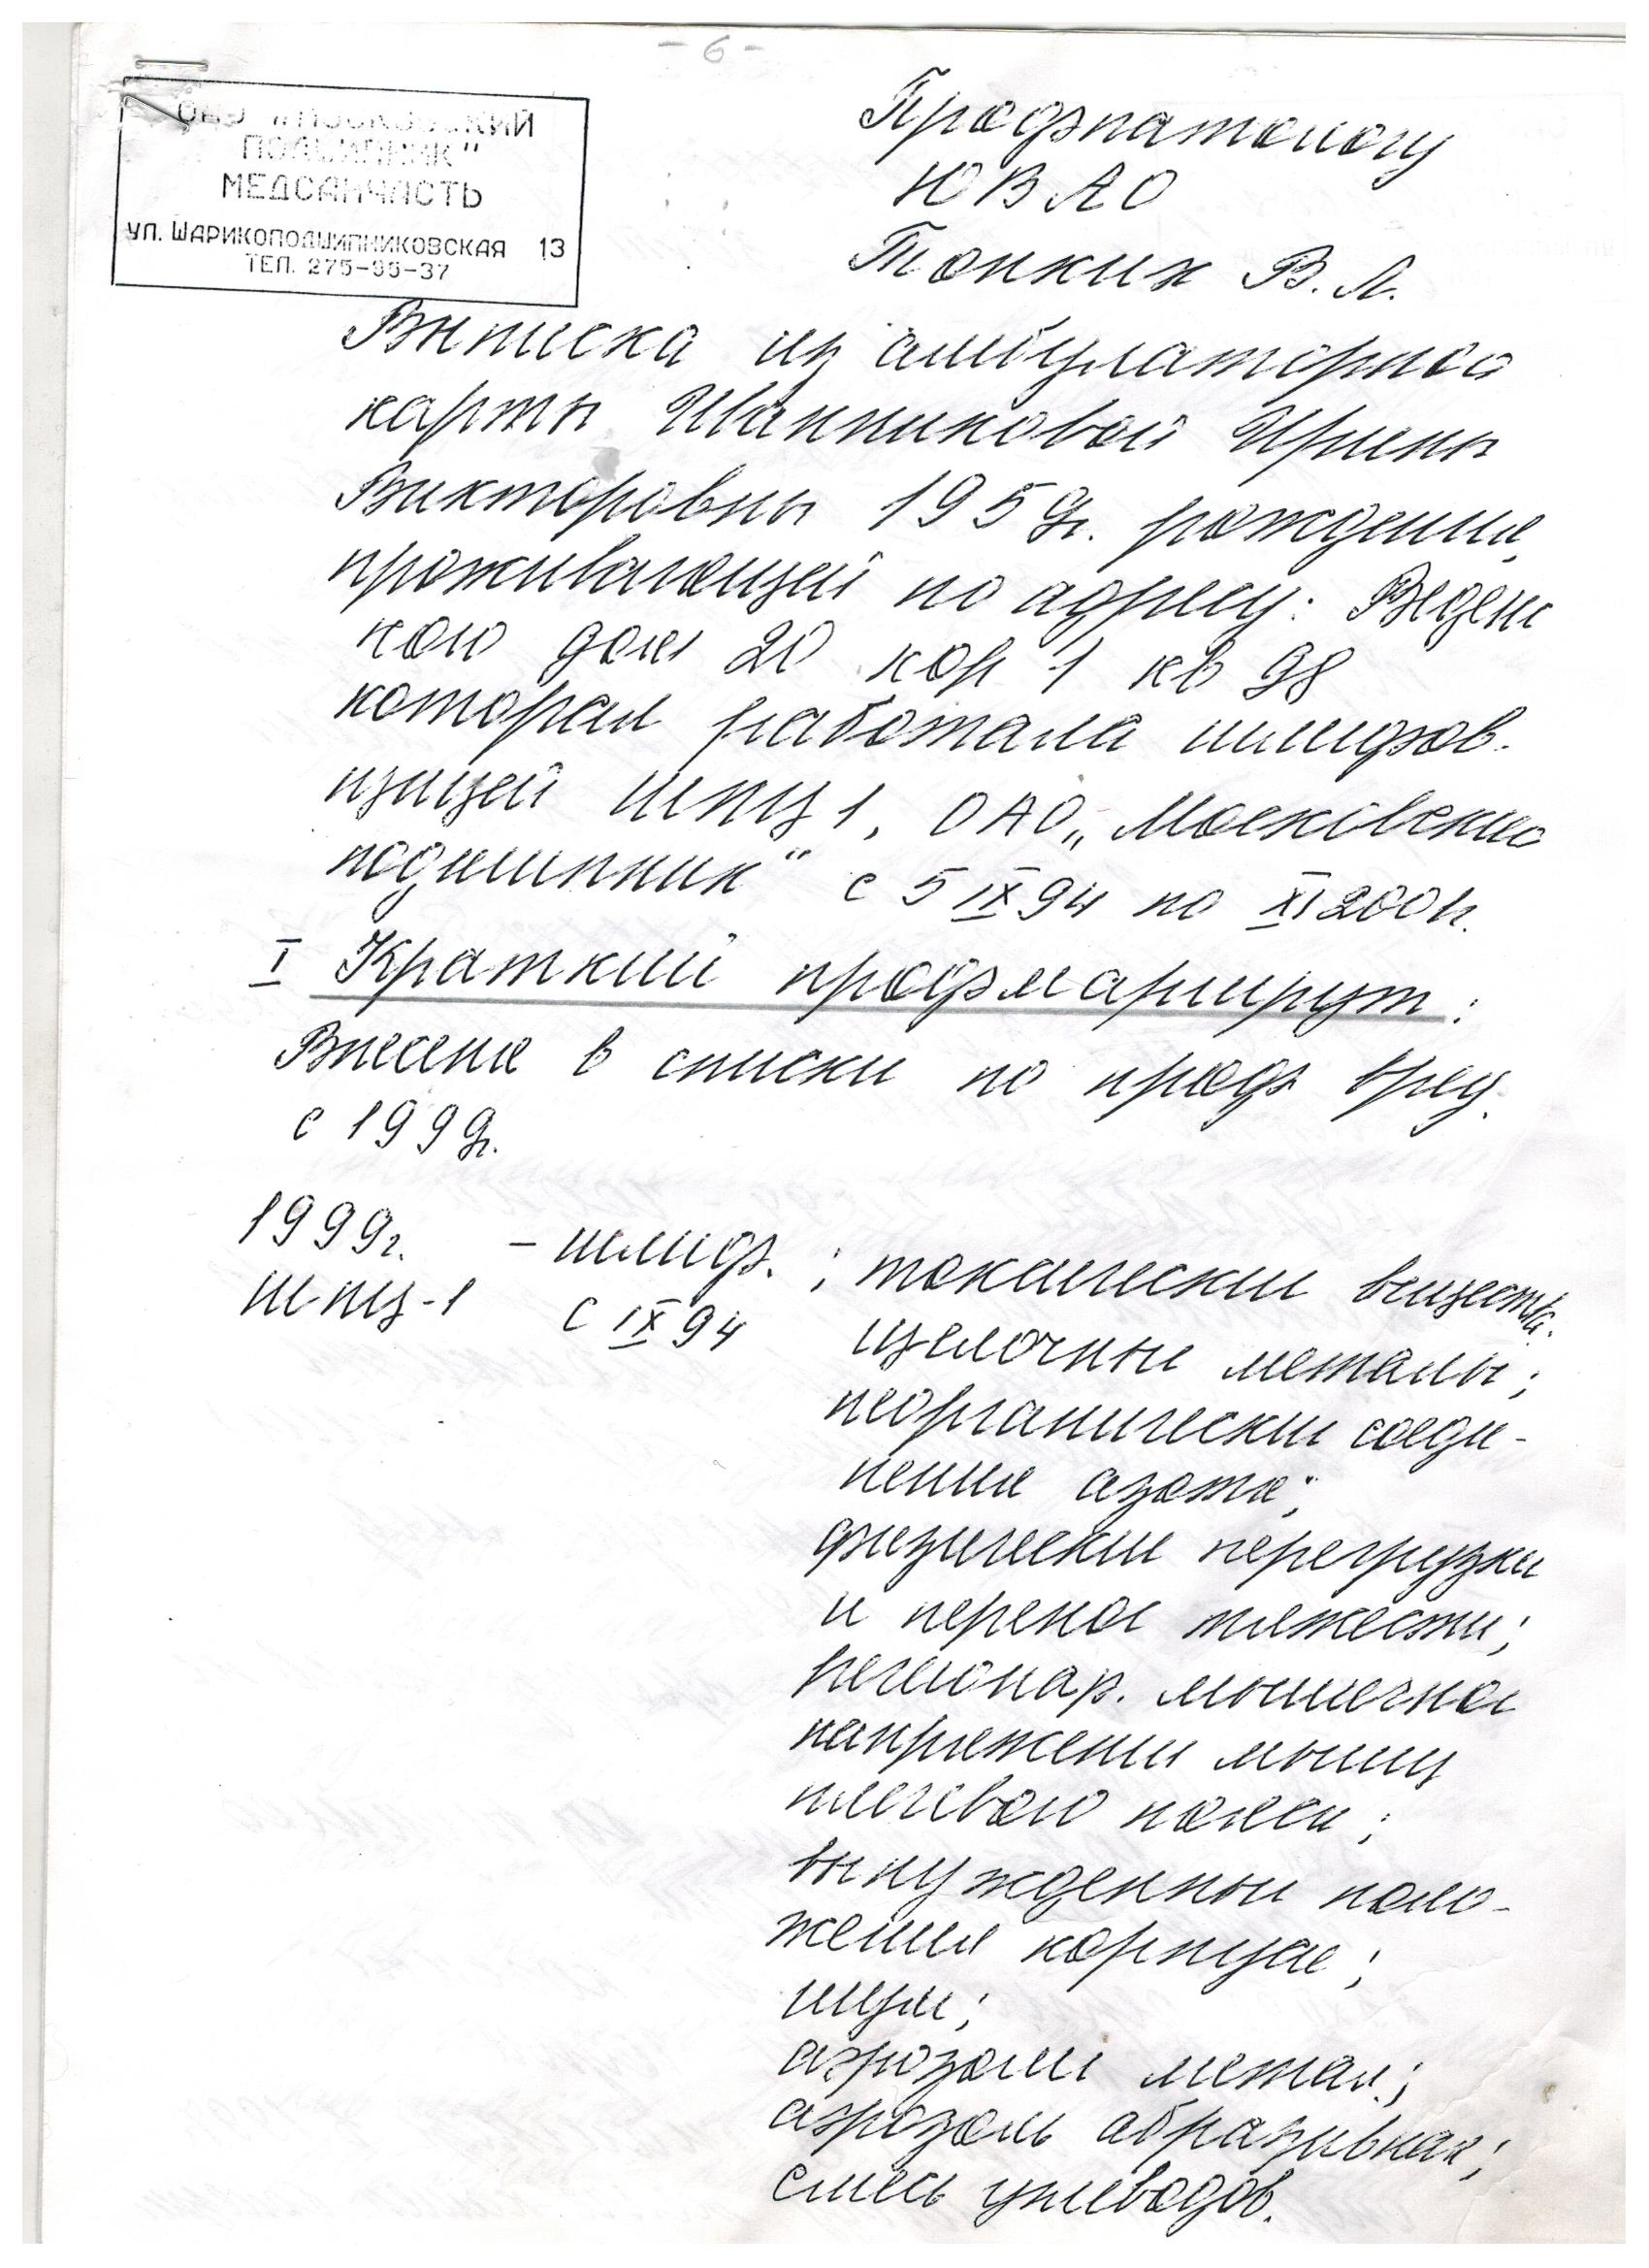 - 6 -
ОАО "МОСКОВСКИЙ
ПОДШИПНИК"
МЕДСАНЧАСТЬ
УЛ. ШАРИКОПОДШИПНИКОВСКАЯ 13
ТЕЛ. 275-95-37
Профпатологу
ЮВАО
Тонких В. Л.
Выписка из амбулаторной
карты Иванниковой Ирины
Викторовны 1959г. рождения,
проживающей по адресу:
дом 20 кор 1 кв 98
которая работала шлифов-
щицей ШПЦ 1, ОАО „Московский
подшипник" с 5 IX 94 по XI 2001г.
I Краткий профмаршрут:
Внесена в списки по проф вред.
с 1999г.
1999г. - шлиф. ; токсически веществ.
ШПЦ-1 с IX 94 щелочные металы;
неорганически соеди-
нения азота;
физически перегрузки
и перенос тяжести;
регионар. мышечное
напряжении мышц
плечевого пояса;
вынужденныи поло-
жения корпуса;
шум;
аэрозоли метал.;
аэрозоль абразивная;
смесь углеводов.